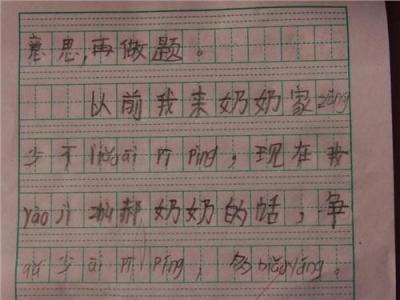 意思,再做题。
以前我来奶奶家zǒng
少不liǎo ái pī píng,现在我
yào jì 郝奶奶的话,争
qǔ少ái pī píng,多biǎo yáng。